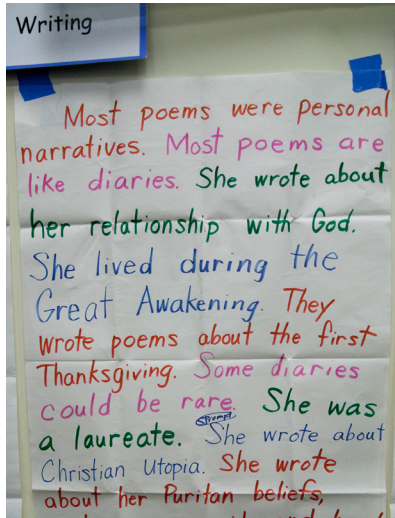 Writing
Most poems were personal
narratives. Most poems are
like diaries. She wrote about
her relationship with God.
She lived during the
Great Awakening. They
wrote poems about the first
Thanksgiving. Some diaries
could be rare. She was
a laureate. She wrote about
Christian Utopia. She wrote
about her Puritan beliefs,